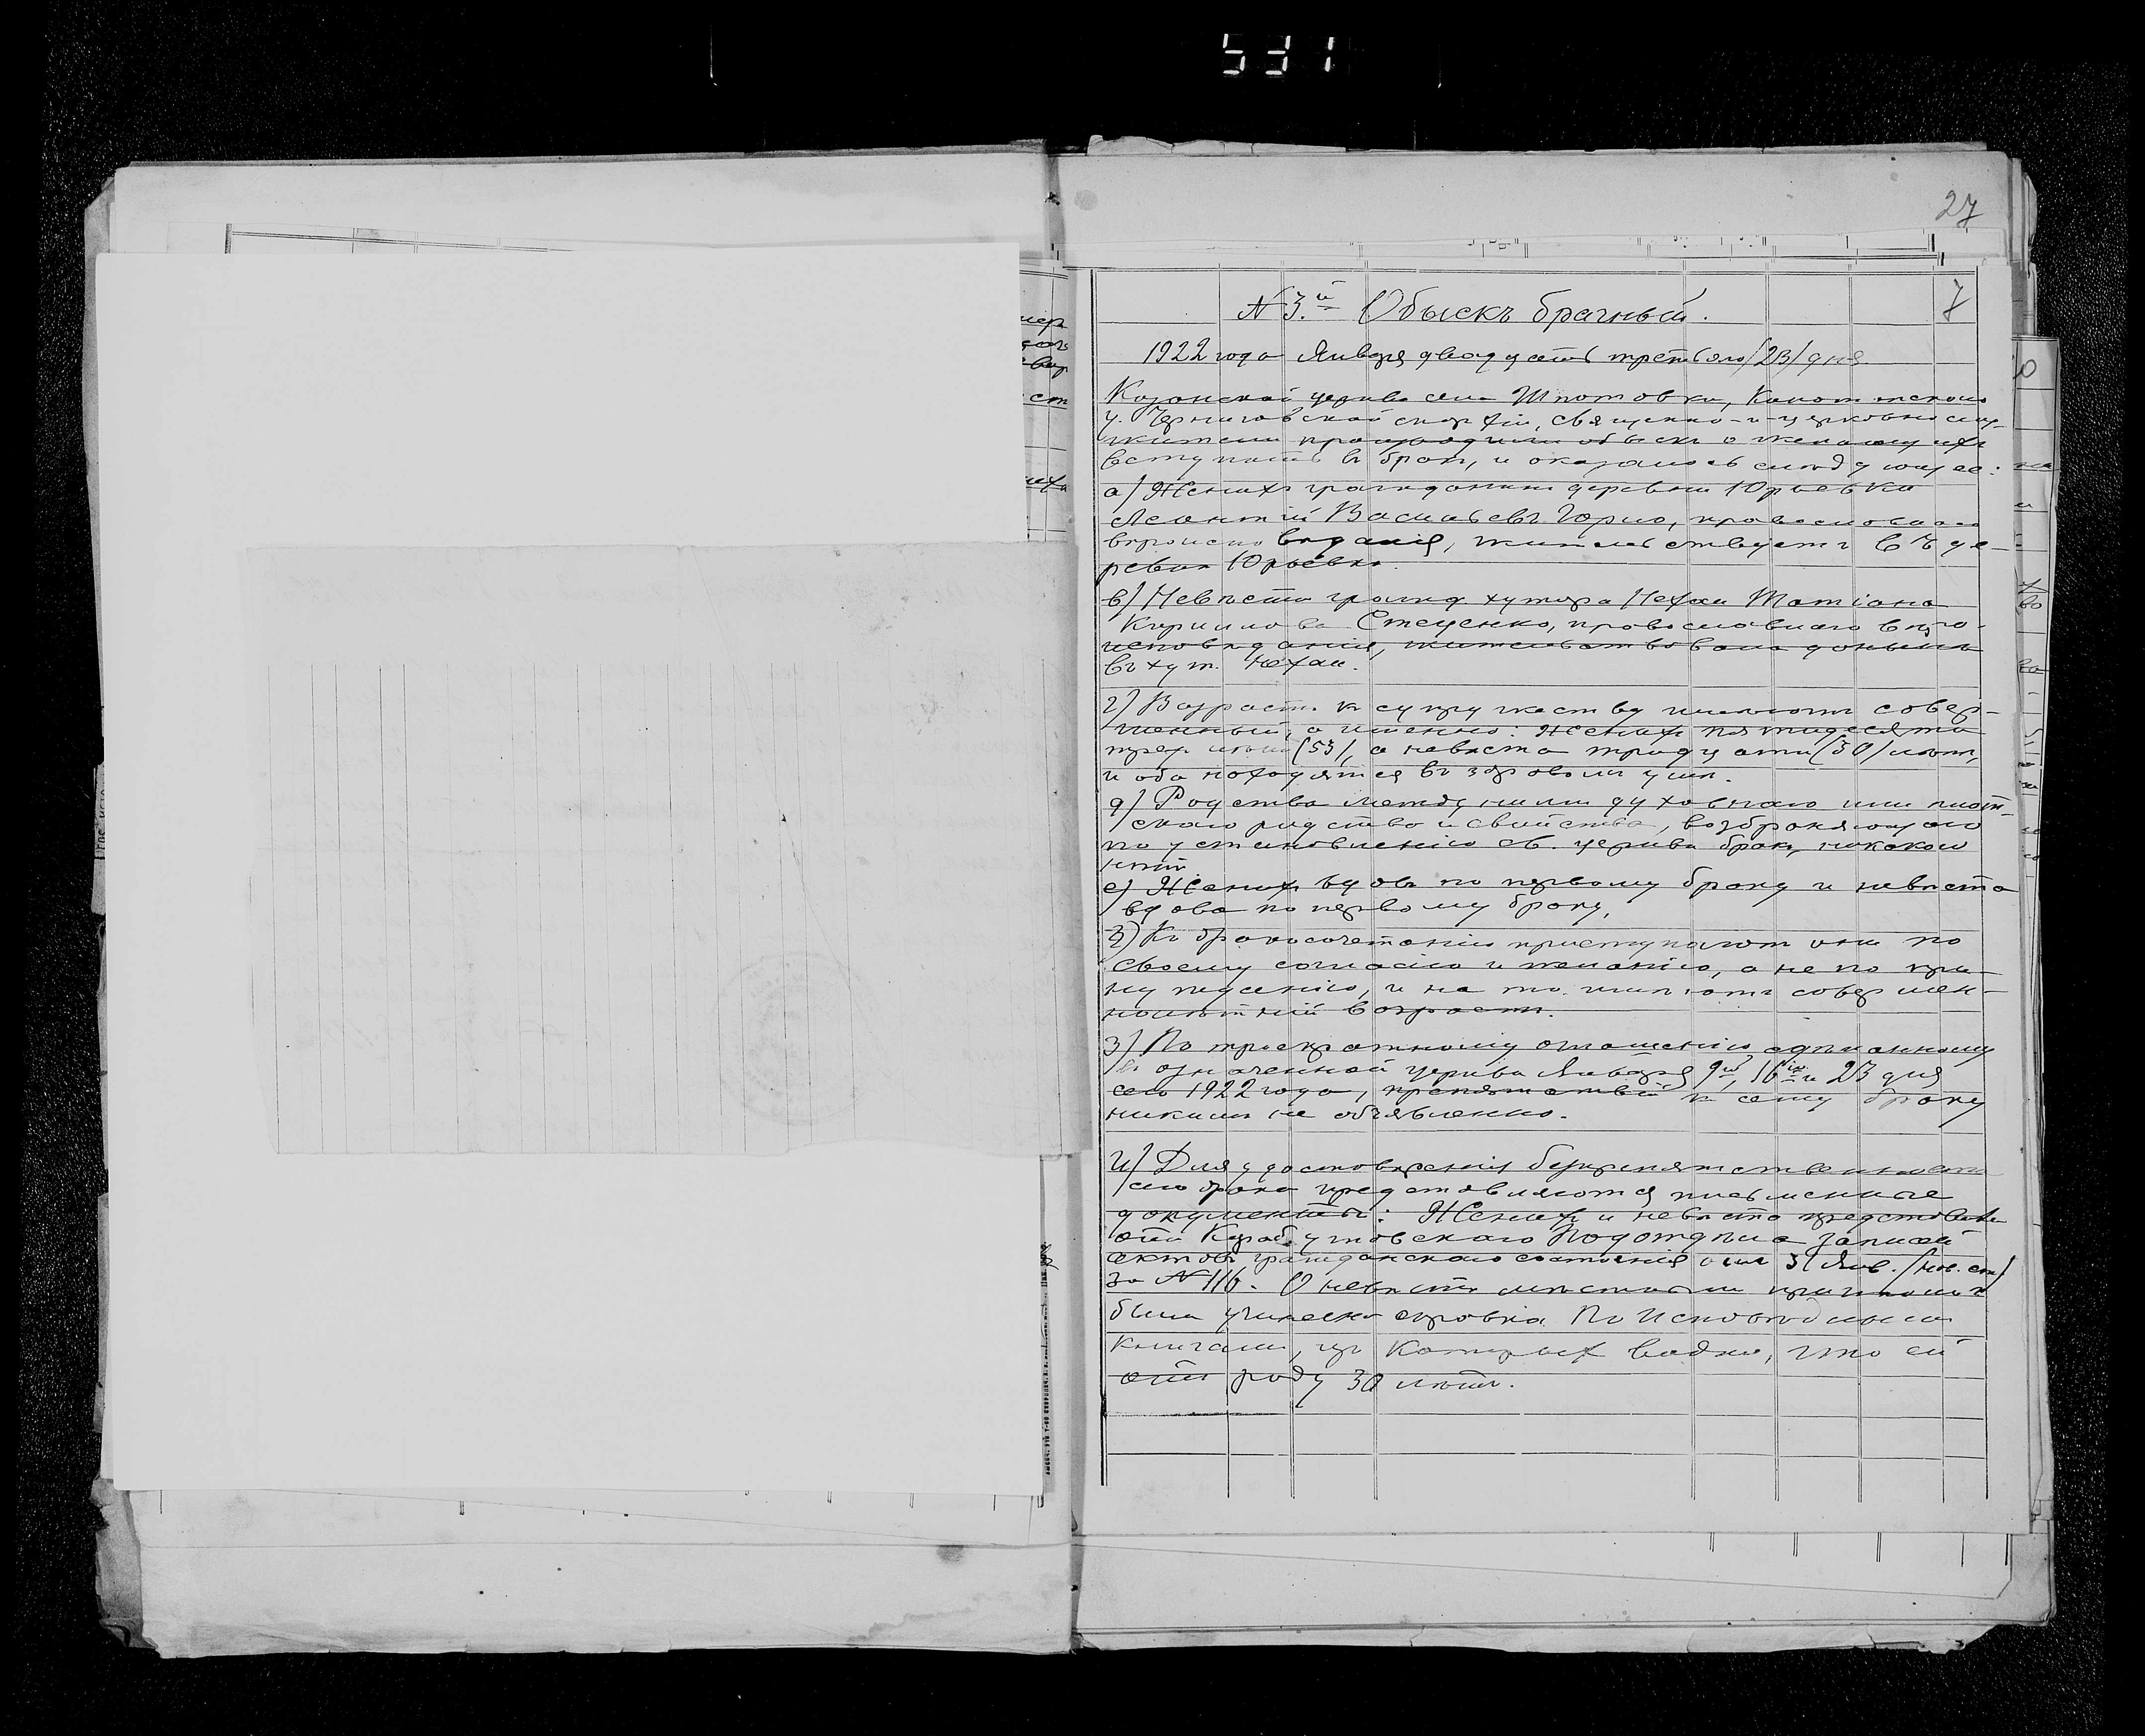 531
27
7
№ 3.й Обыскъ брачный.
1922 года Января двадцать третьяго /23/ дня
Казанской церкви села Шпотовки, Конотопскаго
у. Черниговской епархіи, священно-и-церковнослу-
жители производили обыскъ о желающихъ
вступить въ бракъ, и оказалось слѣдующее:
а) Женихъ гражданинъ деревни Юрьевки
Леонтій Васильевъ Горло, православнаго
вѣроисповѣданія, жительствуетъ въ де-
ревнѣ Юрьевкѣ.
в) Невѣста гражд. хутора Нехаи Татіана
Кириллова Стеценко, православнаго вѣро-
исповѣданія, жительствовала донынѣ
въ хут. Нехаи.
г) Возрастъ къ супружеству имѣютъ совер-
шенный, а именно: Женихъ пятидесяти
трех лѣтъ (53), а невѣста тридцати (30) лѣтъ,
и оба находятся въ здравомъ умѣ.
д) Родства между ними духовнаго или плот-
скаго родства и свойства, возбраняющаго
по установленію св. церкви бракъ, никакого
нѣтъ
е) Женихъ вдовъ по первому браку и невѣста
вдова по первому браку,
ж) Къ бракосочетанію приступаютъ они по
своему согласію и желанію, а не по при-
нужденію, и на то имѣютъ совершен-
нолѣтній возрастъ.
з) По троекратному оглашенію, сдѣланному
въ означенной церкви Января 9го, 16го и 23 дня
сего 1922 года, препятствій къ сему браку
никѣмъ не объявлено.
и) Для удостовѣренія безпрепятственности
сего брака представляются письменные
документы: Женихъ и невѣста представили
отъ Карабутовскаго Подотдѣла записей
актовъ гражданскаго состоянія отъ 31 Янв. (нов. ст.)
за № 116. О невѣстѣ мѣстнымъ причтомъ
была учинена справка по Исповѣднымъ
книгамъ, изъ которыхъ видно, что ей
отъ роду 30 лѣтъ.